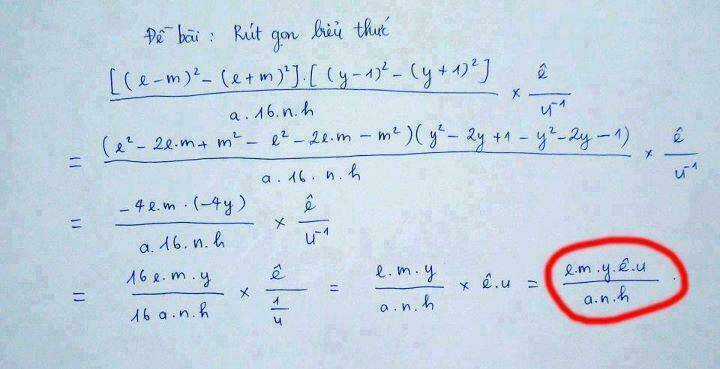 Đề bài : Rút gọn biểu thức
[(e-m)²-(e+m)²].[(y-1)²-(y+1)²] / a.16.n.h × ê / u⁻¹
= (e²-2e.m+m²-e²-2e.m-m²)(y²-2y+1-y²-2y-1) / a.16.n.h × ê / u⁻¹
= -4e.m.(-4y) / a.16.n.h × ê / u⁻¹
= 16e.m.y / 16a.n.h × ê / (1/u) = e.m.y / a.n.h × ê.u = e.m.y.ê.u / a.n.h .